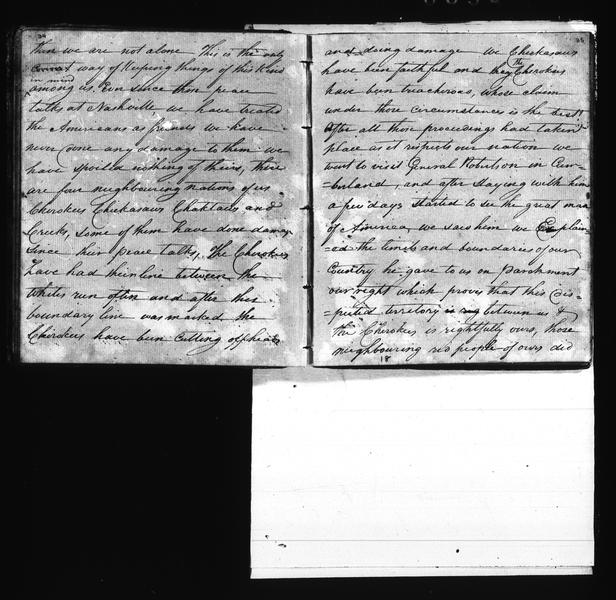 34
then we are not alone This is the only
correct way of keeping things of this kind
in mind
among us. Ever since these peace
talks at Nashville we have treated
the Americans as friends we have
never done any damage to them we
have spoiled nothing of theirs, there
are four neighbouring nations of us
Cherokees Chickasaws Chaktaws and
Creeks, some of them have done damage
since their peace talks, The Cherokees
have had their line between the
whites run often and after this
boundary line was marked the
Cherokees have been cutting off heads
35
and doing damage we Chickasaws
have been faithful and they The Cherokees
have been treacherous, whose claim
under those circumstances is the best?
After all those proceedings had taken
place as it respects our nation we
went to visit General Robertson in Cum
=berland, and after staying with him
a few days started to see the great man
of America, we saw him we Explain
=ed the limits and boundaries of our
Country he gave to us on parchment
our right which proves that this dis=
=puted territory between us &
the Cherokees is rightfully ours, those
neighbouring red people of ours did
18